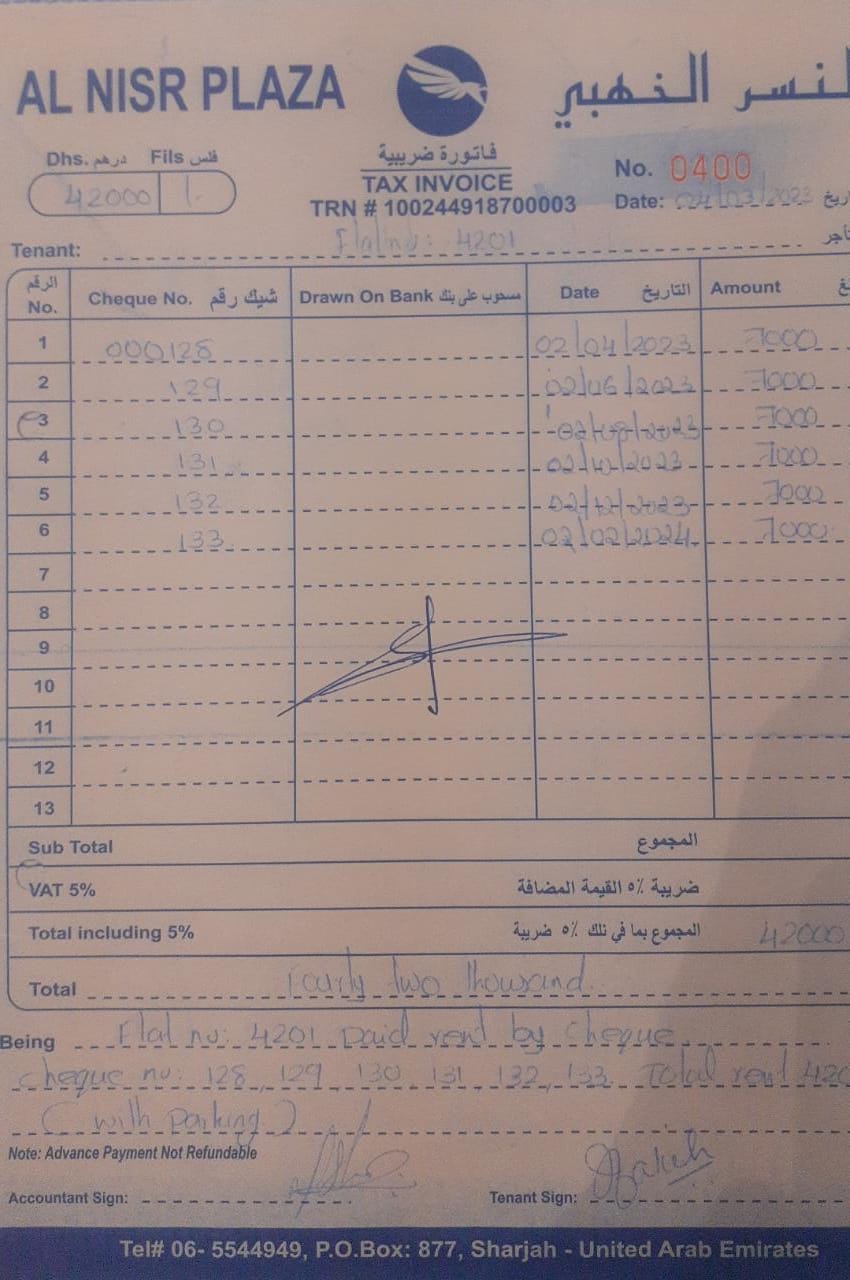 AL NISR PLAZA
لنسر الذهبي
Dhs. درهم Fils فلس
42000
فاتورة ضريبية
TAX INVOICE
TRN # 100244918700003
No. 0400
Date: 04/03/2023
Tenant: Flat no: 4201
الرقم No. Cheque No. شيك رقم Drawn On Bank مسحوب على بنك Date التاريخ Amount
1 000128 02/04/2023 7000
2 129 02/06/2023 7000
3 130 7000
4 131 7000
5 132 02/12/2023 7000
6 133 02/02/2024 7000
7
8
9
10
11
12
13
Sub Total المجموع
VAT 5% ضريبة ٥٪ القيمة المضافة
Total including 5% المجموع بما في ذلك ٥٪ ضريبة 42000
Total Fourty two thousand
Being Flat no: 4201 Paid rent by cheque
cheque no: 128, 129, 130, 131, 132, 133. Total rent 420
(with parking)
Note: Advance Payment Not Refundable
Accountant Sign:
Tenant Sign:
Tel# 06- 5544949, P.O.Box: 877, Sharjah - United Arab Emirates